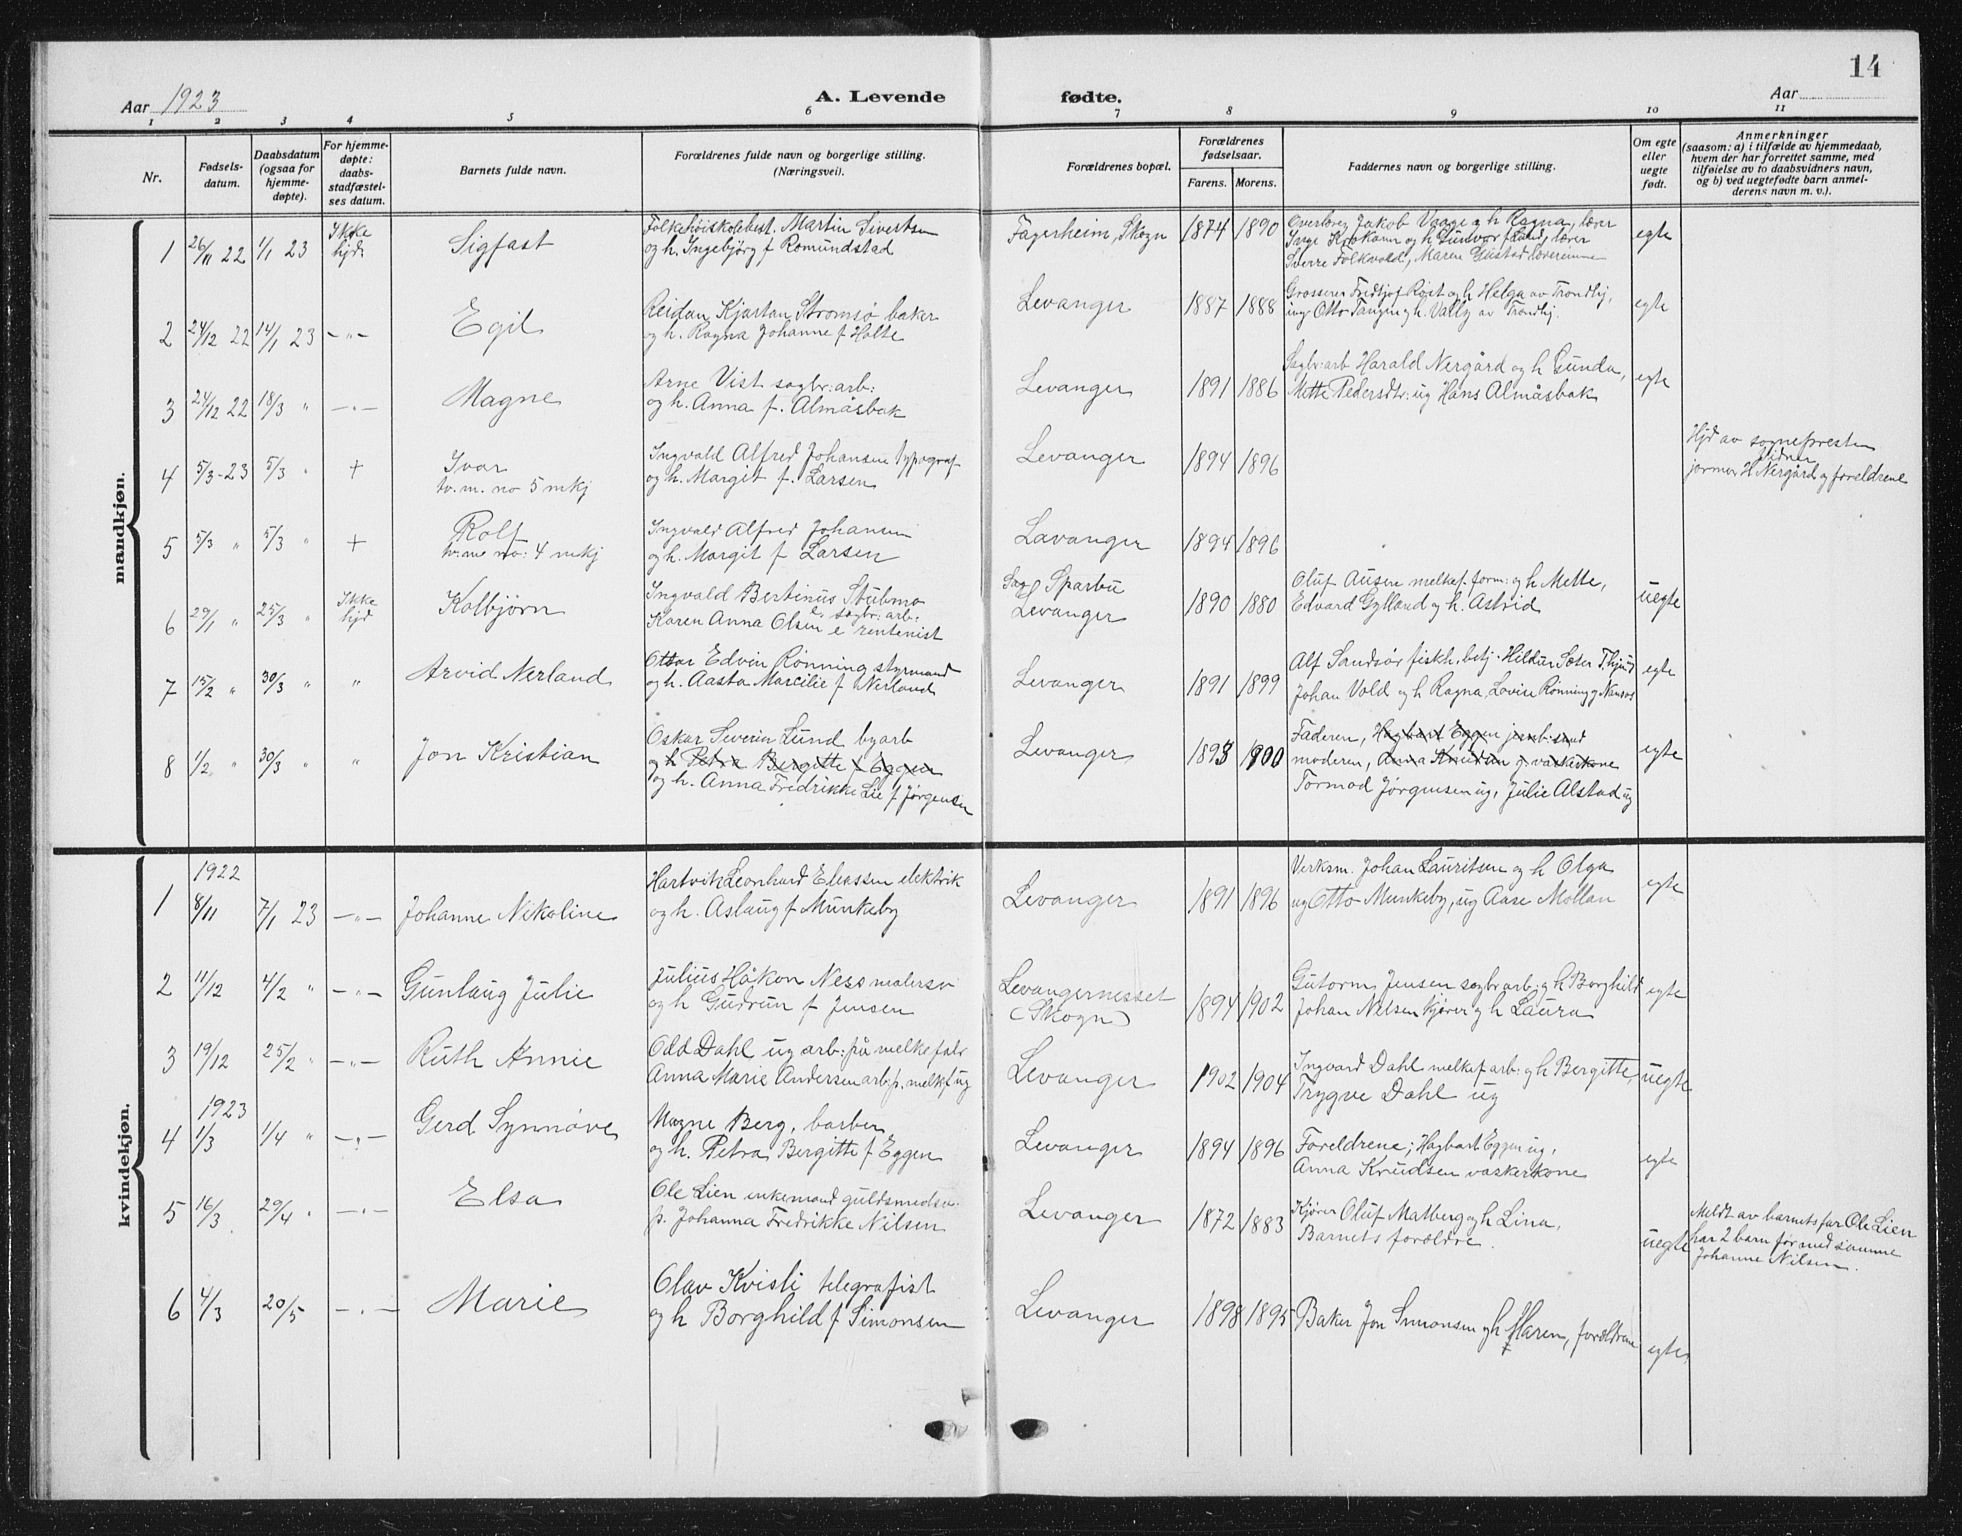 14
Aar 1923 A. Levende fødte. Aar
1 2 3 4 5 6 7 8 9 10 11
Nr.
Fødsels-
datum.
Daabsdatum
(ogsaa for
hjemme-
døpte).
For hjemme-
døpte:
daabs-
stadfæstel-
ses datum.
Barnets fulde navn.
Forældrenes fulde navn og borgerlige stilling.
(Næringsvei).
Forældrenes bopæl.
Forældrenes
fødselsaar.
Farens. Morens.
Faddernes navn og borgerlige stilling.
Om egte
eller
uegte
født.
Anmerkninger
(saasom: a) i tilfælde av hjemmedaab,
hvem der har forrettet samme, med
tilføielse av to daabsvidners navn,
og b) ved uegtefødte barn anmel-
derens navn m. v.).
mandkjøn.
1 26/11 22 1/1 23 Ikke hjd: Sigfast
Folkehøiskolebest. Martin Sivertsen
og h. Ingebjørg f Romundstad
Fagerheim, Skogn 1874 1890
Overlærer Jakob Vaage og h Ragna, lærer
Inge Krokann og h Gunvor f Sand, lærer
Sverre Folkvold, Maren Gustad lærerinne
egte
2 24/12 22 14/1 23 -"- Egil
Reidan Kjartan Stromsø baker
og h. Ragna Johanne f Holte
Levanger 1887 1888
Grosserer Fridtjof Røst og h Helga av Trondhj,
ing Otto Tangen og h. Vally av Trondhj.
egte
3 24/12 22 18/3 " -"- Magne
Arne Vist sagbr: arb:
og h. Anna f. Almåsbak
Levanger 1891 1886
Sagbr: arb Harald Nergård og h Gunda,
Mette Pedersdtr: ug Hans Almåsbak
egte
4 5/3-23 5/3 " + Ivar
tv. m. no 5 mkj
Ingvald Alfred Johansen typograf
og h. Margit f. Larsen
Levanger 1894 1896
Hjd av sognepresten
Vidner
jormor H Nergård og foreldrene
5 5/3 " 5/3 " + Rolf
tv: m no: 4 mkj
Ingvald Alfred Johansen
og h. Margit f Larsen
Lavanger 1894 1896
6 29/1 " 25/3 " Ikke hjd Kolbjørn
Ingvald Bertinus Stubmo
e. sagbr: arb:
Karen Anna Olsen e rentenist
Sparbu
Levanger 1890 1880
Oluf Ausen melkef. form: og h Mette,
Edvard Gylland og h. Astrid
uegte
7 15/2 " 30/3 " " Arvid Nerland
Ottar Edvin Rønning styrmand
og h. Aasta Marcilie f Nerland
Levanger 1891 1899
Alf Sandsør fiskh. betj. Hildur Sæter T.hjem
Johan Vold og h Ragna, Lovise Rønning g Namsos
egte
8 1/2 " 30/3 " " Jon Kristian
Oskar Severin Lund byarb
og h Petra Bergitte f Eggen
og h. Anna Fredrikke Lie f Jørgensen
Levanger 1893 1900
Faderen, Hagbart Eggen jernb: smed
moderen, Anna Knudsen g vaskerkone
Tormod Jørgensen ug, Julie Alstad ug
egte
kvindekjøn.
1 1922
8/11 7/1 23 -"- Johanne Nikoline
Hartvik Leonhard Eliassen elektrik
og h. Aslaug f Munkeby
Levanger 1891 1896
Verksm. Johan Lauritsen og h Olga
ug Otto Munkeby, ug Aase Mollan
egte
2 11/12 4/2 " -"- Gunlaug Julie
Julius Håkon Ness malersv
og h Gudrun f Jensen
Levangernesset
(Skogn) 1894 1902
Gutorm Jensen sagbr arb: og h Borghild
Johan Nilsen kjører og h Laura
egte
3 19/12 25/2 " -"- Ruth Annie
Odd Dahl ug arb: på melkefabr
Anna Marie Andersen arb: p. melkf ug
Levanger 1902 1904
Ingvard Dahl melkef arb: og h Bergitte,
Trygve Dahl ug
uegte
4 1923
1/3 1/4 " -"- Gerd Synnøve
Magne Berg, barber
og h. Petra Bergitte f Eggen
Levanger 1894 1896
Foreldrene; Hagbart Eggen ug,
Anna Knudsen vaskerkone
egte
5 16/3 29/4 " -"- Elsa
Ole Lien enkemand guldsmedsv.
p. Johanna Fredrikke Nilsen
Levanger 1872 1883
Kjører Oluf Matberg og h Lina,
Barnets foreldre.
uegte
Meldt av barnets far Ole Lien
har 2 barn før med samme
Johanne Nilsen.
6 4/3 20/5 -"- Marie
Olav Kvisli telegrafist
og h Borghild f Simonsen
Levanger 1898 1895
Baker Jon Simonsen og h Maren, foreldrene
egte